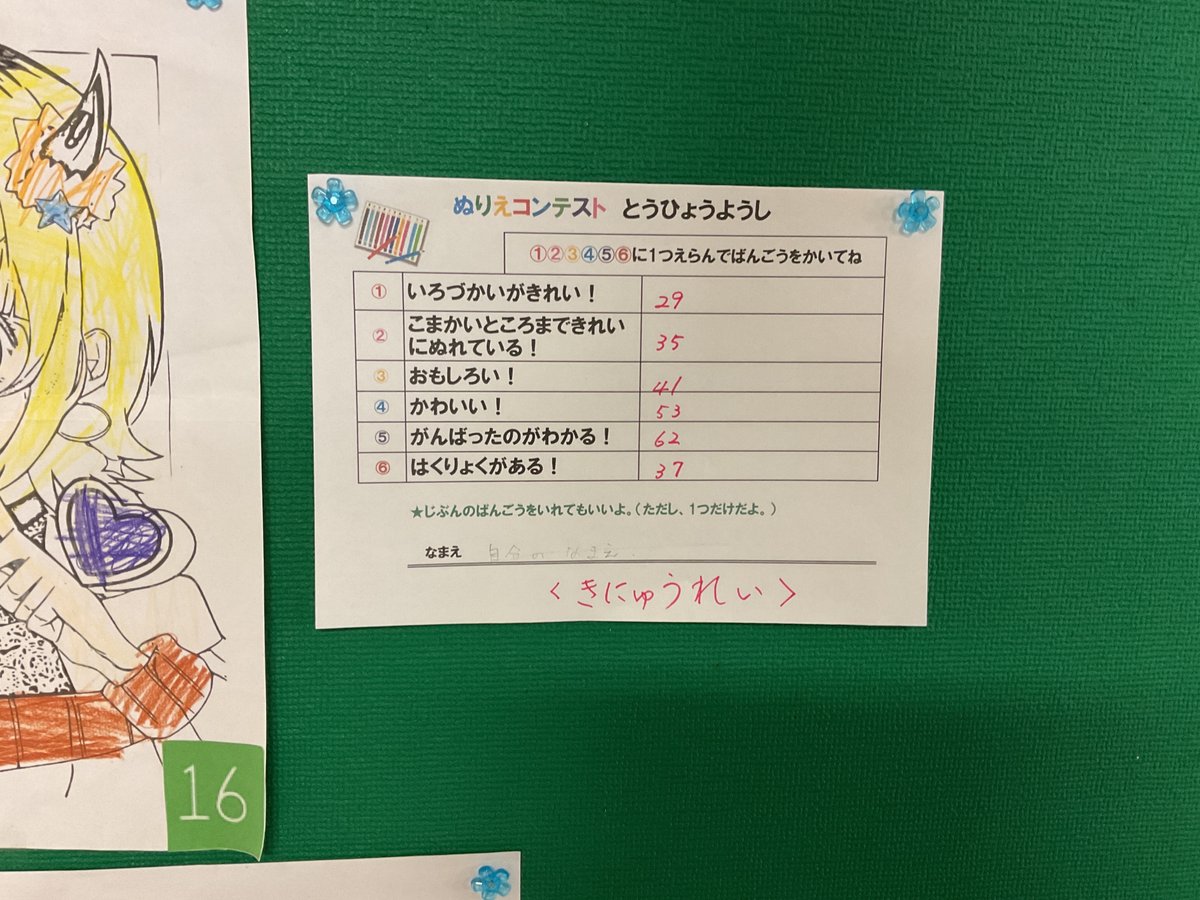 ぬりえコンテスト とうひょうようし
①②③④⑤⑥に1つえらんでばんごうをかいてね
① いろづかいがきれい！ 29
② こまかいところまできれい
にぬれている！ 35
③ おもしろい！ 41
④ かわいい！ 53
⑤ がんばったのがわかる！ 62
⑥ はくりょくがある！ 37
★じぶんのばんごうをいれてもいいよ。（ただし、1つだけだよ。）
なまえ 自分のなまえ.
＜きにゅうれい＞
16